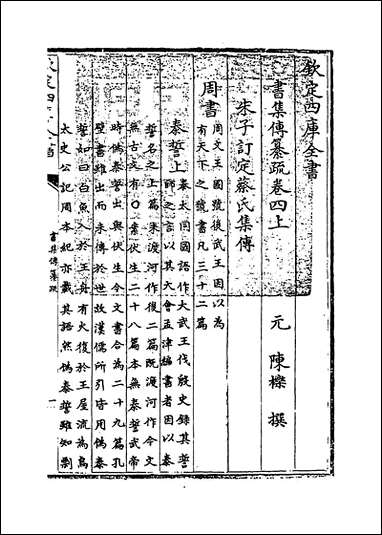 欽定四庫全書
書集傳纂疏卷四上
元 陳櫟 撰
朱子訂定蔡氏集傳
周書
周文王國號後武王因以為
有天下之號書凡三十二篇
泰誓上
泰太同國語作大武王伐殷史錄其誓
師之言以其大會孟津編書者因以泰
誓名之上篇未渡河作後二篇既渡河作今文
無古文有〇案伏生二十八篇本無泰誓武帝
時偽泰誓出與伏生今文書合為二十九篇孔
壁書雖出而未傳於世故漢儒所引皆用偽泰
誓如曰白魚入於王舟有火復於王屋流為烏
太史公記周本紀亦載其語然偽泰誓雖知剽
書集傳纂疏
一